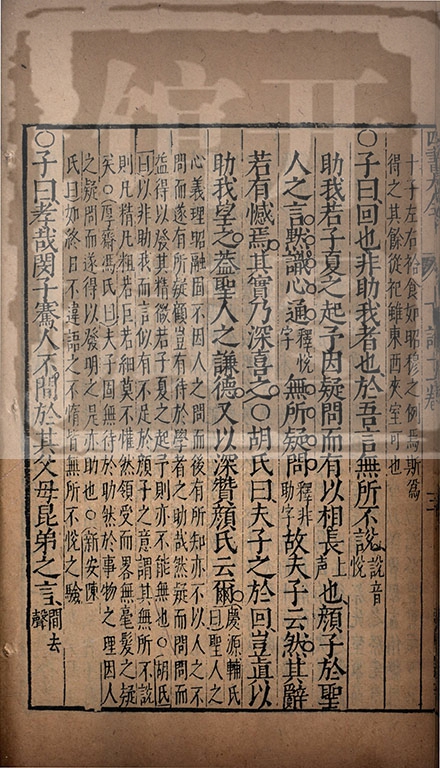 十子左右祫食如昭穆之例焉斯爲
得之其餘從祀雖東西夾室可也
○子曰回也非助我者也於吾言無所不說說音悅
助我若子夏之起予因疑問而有以相長上聲也顏子於聖
人之言黙識心通釋悅字無所疑問釋非助字故夫子云然其辭
若有憾焉其實乃深喜之○胡氏曰夫子之於回豈眞以
助我望之葢聖人之謙德又以深贊顏氏云爾慶源輔氏曰聖人之
心義理昭融固不因人之問而後有所知亦不以人之不
問而遂有所疑顧豈有待於學者之助哉然疑而問問而
益得以發其精微若子夏之起予則亦不能無也○胡氏
曰以非助我而言似有不足於顏子之意謂其無所不說
則凡精凡粗若巨若細莫不惟然領受而畧無毫髮之疑
矣○厚齋馮氏曰夫子固無待於助然於事物之理因人
之疑問而遂得以發明之是亦助也○新安陳
氏曰如終日不違語之不惰皆無所不悅之驗
○子曰孝哉閔子騫人不間於其父母昆弟之言間去聲